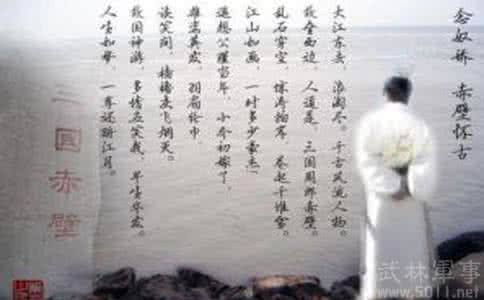 念奴娇 赤壁怀古
大江东去,浪淘尽。千古风流人物。
故垒西边,人道是,三国周郎赤壁。
乱石穿空,惊涛拍岸,卷起千堆雪。
江山如画,一时多少豪杰。
遥想公瑾当年,小乔初嫁了,
雄姿英发,羽扇纶巾,
谈笑间,樯橹灰飞烟灭。
故国神游,多情应笑我,早生华发。
人生如梦,一尊还酹江月。
三國赤壁
武林軍事
www.5011.net